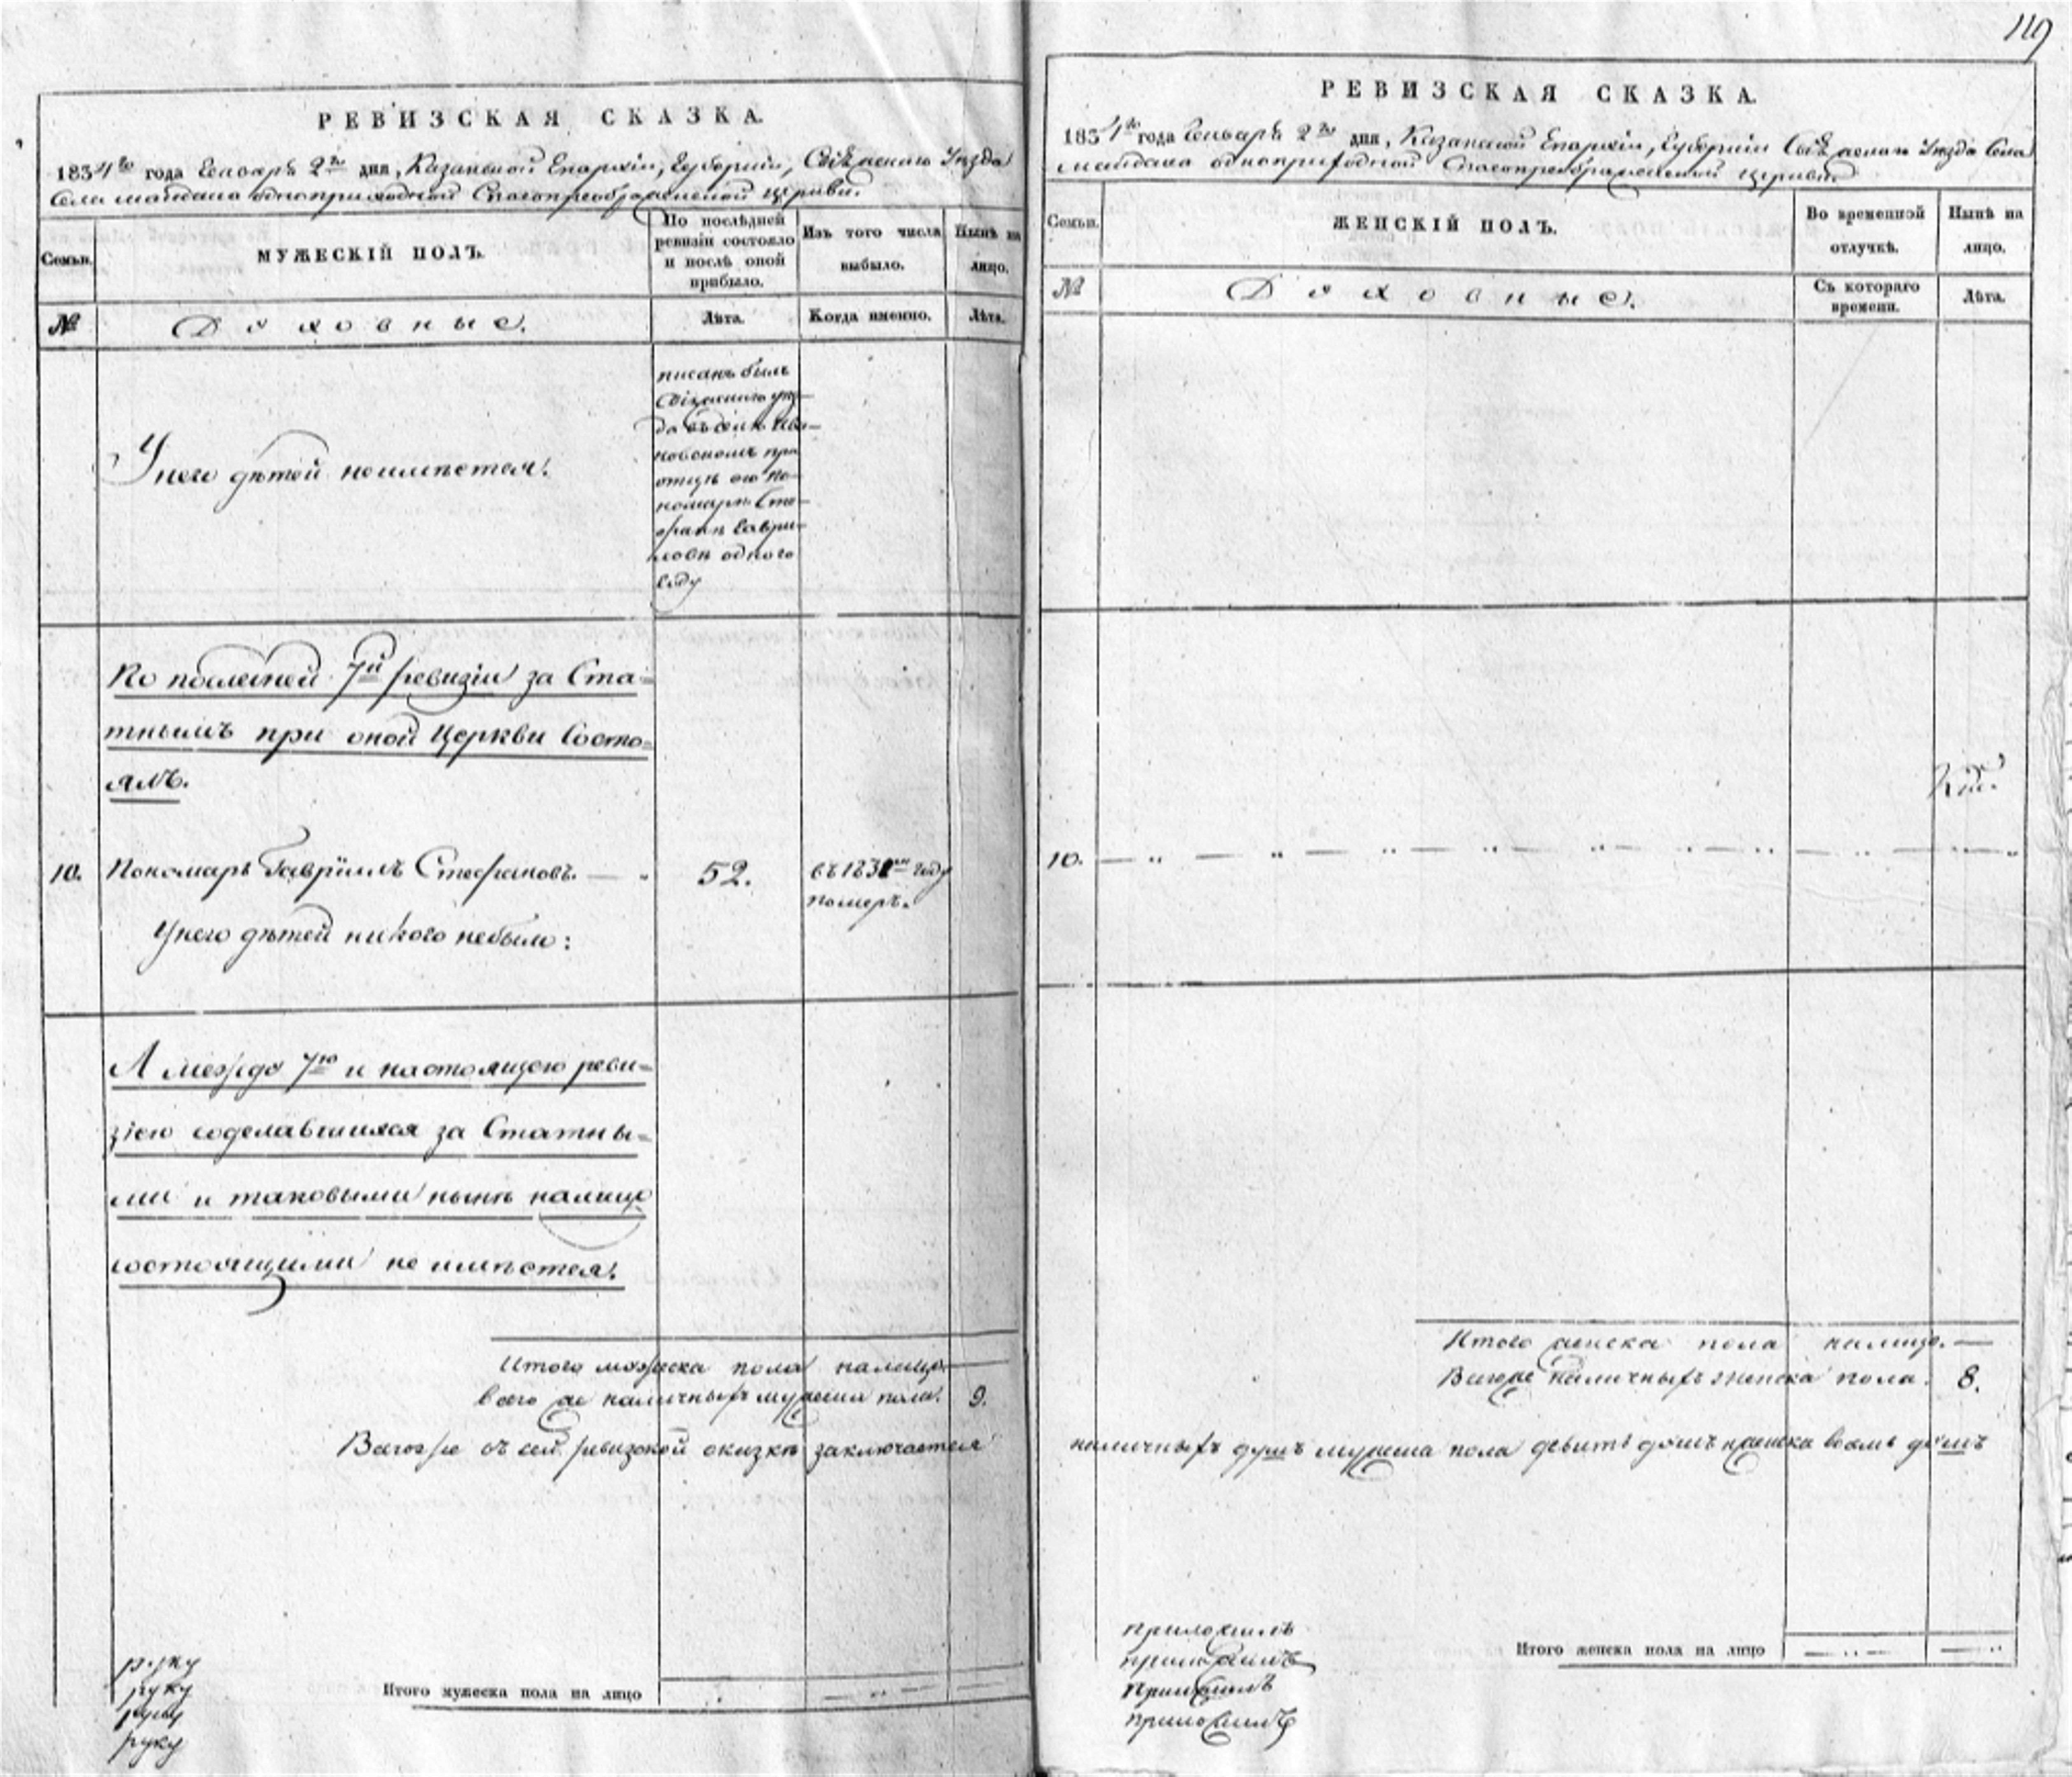 119
РЕВИЗСКАЯ СКАЗКА.
1834го года Генваря 2го дня, Казанской Епархіи, Губерніи, Свіяжскаго Уѣзда
Села майдана одноприходной Спасопреображенской церкви.
Семьи.
МУЖЕСКІЙ ПОЛЪ.
По послѣдней
ревизіи состояло
и послѣ оной
прибыло.
Изъ того числа
выбыло.
Нынѣ на
лицо.
№
Духовные.
Лѣта.
Когда именно.
Лѣта.
У него дѣтей неимѣется.
писанъ былъ
Свіяжскаго уѣз-
да въ селѣ Ива-
новскомъ при
отцѣ его по-
номарѣ Сте-
фанѣ Гаври-
ловѣ одного
году
По последней 7й ревизіи за Ста-
тнымъ при оной Церкви Состо-
ялъ.
10.
Пономарь Гавріилъ Стефановъ.
52.
въ 183 году
померъ.
У него дѣтей никого небыло:
А между 7ю и настоящею реви-
зіею соделавшихся за Статны-
ми и таковыми нынѣ налицо
состоящими не имѣется.
Итого мужеска пола налицо
всего же наличныхъ мужеска пола. 9.
Всегоже въ сей ревизской сказкѣ заключается
руку
руку
руку
руку
Итого мужеска пола на лицо
РЕВИЗСКАЯ СКАЗКА.
1834го года Генваря 2го дня, Казанской Епархіи, Губерніи Свіяжскаго Уѣзда Села
майдана одноприходной Спасопреображенской церкви
Семьи.
ЖЕНСКІЙ ПОЛЪ.
Во временной
отлучкѣ.
Нынѣ на
лицо.
№
Духовные.
Съ котораго
времени.
Лѣта.
10.
Итого женска пола налицо.
Всегоже наличныхъ женска пола. 8.
наличныхъ душъ мужеска пола девять душъ женска восмь душъ
приложилъ
приложилъ
приложилъ
приложилъ
Итого женска пола на лицо